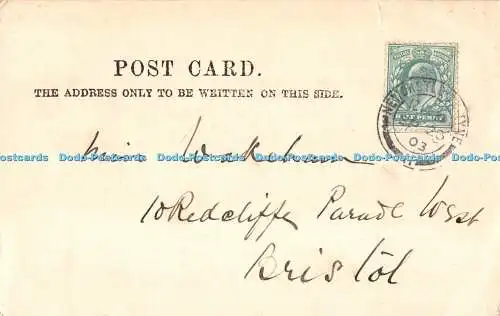 POST CARD.
THE ADDRESS ONLY TO BE WRITTEN ON THIS SIDE.
HALF PENNY
03
Dodo-Postcards Dodo-Postcards Dodo-Postcards Dodo-Postcards
Miss Wakeham
10 Redcliffe Parade West
Bristol